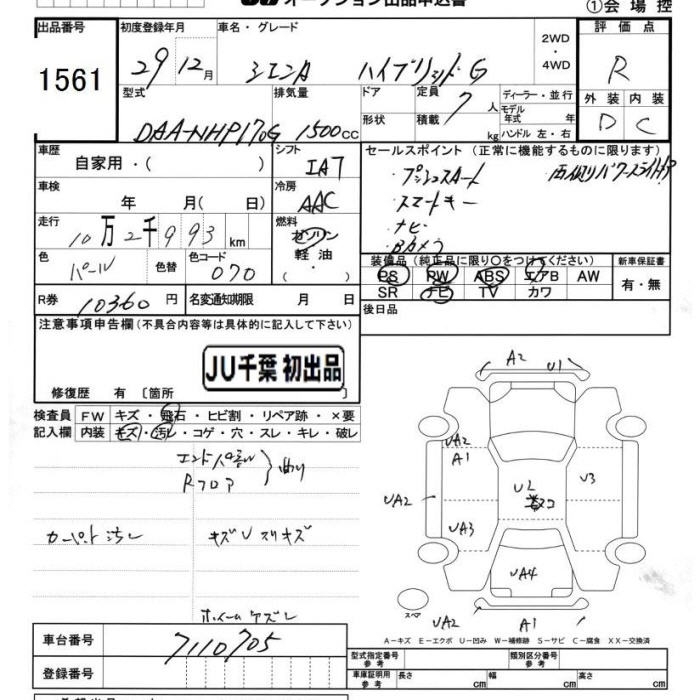 オークション出品申込書
①会場控
出品番号 初度登録年月 車名・グレード 2WD・4WD 評価点
1561 29年12月 シエンタ ハイブリッドG R
型式 排気量 ドア 定員 7人 ディーラー・並行 外装 内装
モデル年式 年
DAA-NHP170G 1500cc 形状 積載 kg ハンドル 左・右 D C
車歴 シフト セールスポイント (正常に機能するものに限ります)
自家用・( ) IA7
・プッシュスタート 両側パワースライドドア
車検 年 月(日) 冷房 AAC ・スマートキー
・ナビ
走行 10万2千993km 燃料 ガソリン・軽油・( ) ・Bカメラ
色 パール 色替 色コード 070
装備品(純正品に限り○をつけてください) 新車保証書
PS PW ABS エアB AW 有・無
SR ナビ TV カワ
R券 10360円 名変通知期限 月 日 後日品
注意事項申告欄(不具合内容等は具体的に記入して下さい)
JU千葉 初出品
修復歴 有〔箇所 〕
検査員記入欄 FW キズ・飛石・ヒビ割・リペア跡・×要
内装 キズ・汚レ・コゲ・穴・スレ・キレ・破レ
エンドパネル
Rフロア 曲り
カーペット汚レ キズU スリキズ
A2 U1
UA2
A1
UA2 U2 U3
UA3
UA4
スペア UA2 A1
A-キズ E-エクボ U-凹み W-補修跡 S-サビ C-腐食 XX-交換済
車台番号 7110705
型式指定番号 参考 類別区分番号 参考
登録番号
車庫証明用 参考 長さ cm 幅 cm 高さ cm